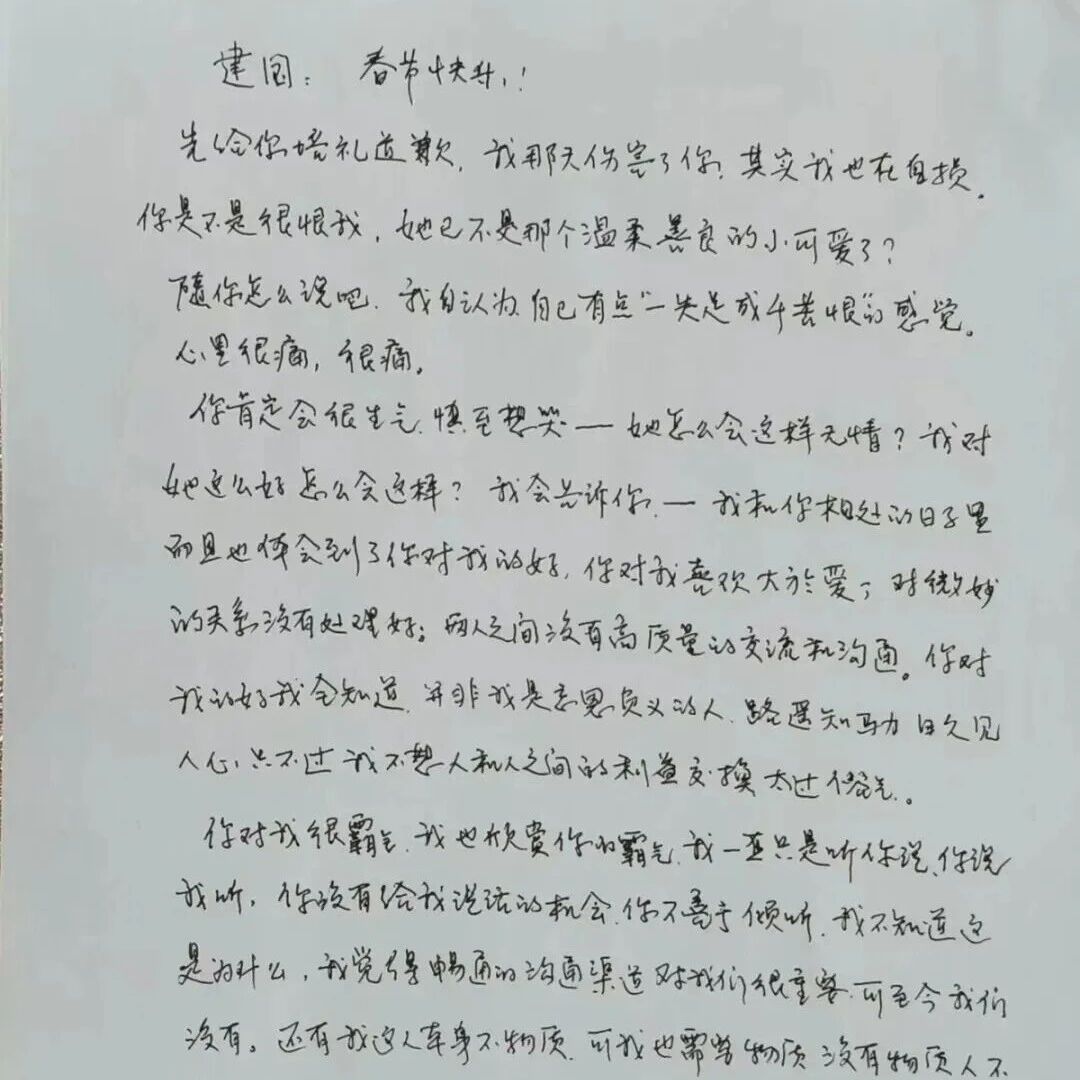 建国：春节快乐！
先给你赔礼道歉，我那天伤害了你，其实我也在自损。
你是不是很恨我，她已不是那个温柔善良的小可爱了？
随你怎么说吧，我自认为自己有点“一失足成千苦恨”的感觉。
心里很痛，很痛。
你肯定会很生气，慎至想哭——她怎么会这样无情？我对
她这么好怎么会这样？我会告诉你，——我和你相处的日子里
而且也体会到了你对我的好，你对我喜欢大於爱，对微妙
的关系没有处理好；两人之间没有高质量的交流和沟通。你对
我的好我全知道，并非我是忘恩负义的人，路遥知马力日久见
人心，只不过我不想人和人之间的利益交换太过俗气。
你对我很霸气，我也欣赏你的霸气，我一直只是听你说，你说
我听，你没有给我说话的机会，你不善于倾听，我不知道这
是为什么，我觉得畅通的沟通渠道对我们很重要，可至今我们
没有。还有我这人本身不物质，可我也需要物质没有物质人不